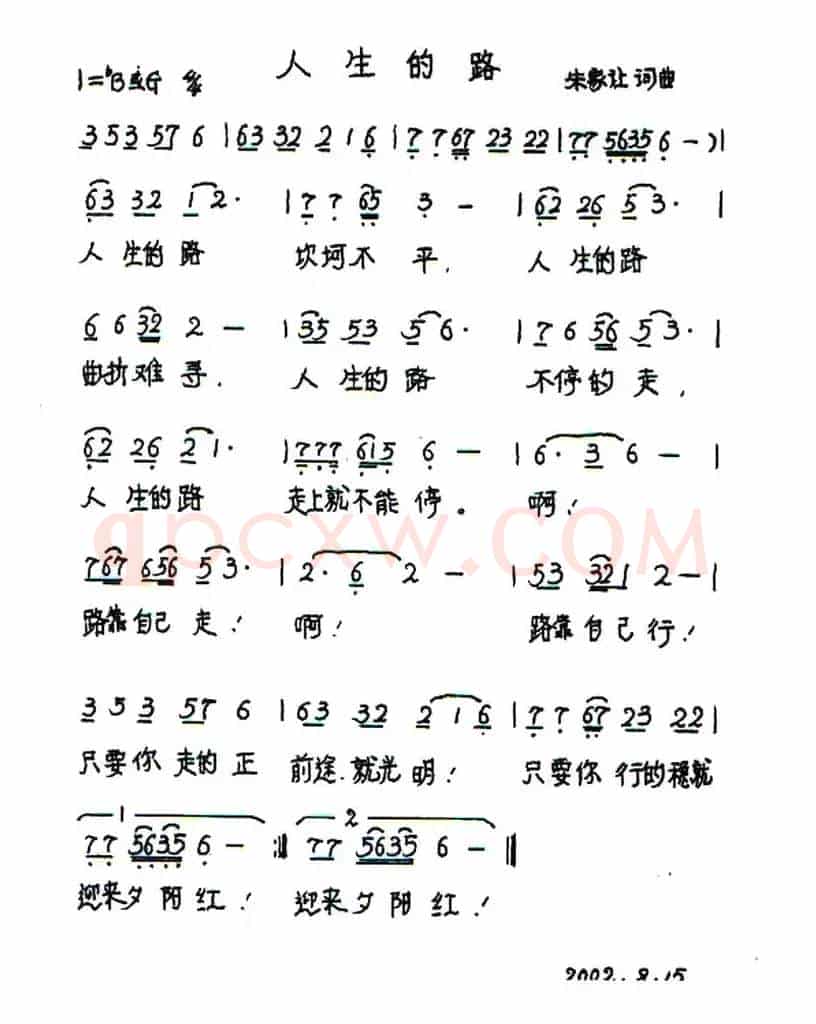 人生的路
1=♭B或G 4/4 朱象让 词曲
3 5 3 5 7 6 | 6 3 3 2 2 1 6 | 7 7 6 7 2 3 2 2 | 7 7 5 6 3 5 6 － ) |
6 3 3 2 1 2· | 7 7 6 5 3 － | 6 2 2 6 5 3· |
人生的路 坎坷不平, 人生的路
6 6 3 2 2 － | 3 5 5 3 5 6· | 7 6 5 6 5 3· |
曲折难寻, 人生的路 不停的走,
6 2 2 6 2 1· | 7 7 7 6 1 5 6 － | 6· 3 6 － |
人生的路 走上就不能停。 啊!
qpcxw.COM
7 6 7 6 5 6 5 3· | 2· 6 2 － | 5 3 3 2 1 2 － |
路靠自己走! 啊! 路靠自己行!
3 5 3 5 7 6 | 6 3 3 2 2 1 6 | 7 7 6 7 2 3 2 2 |
只要你走的正 前途.就光明! 只要你行的稳就
1 2
7 7 5 6 3 5 6 － :‖ 7 7 5 6 3 5 6 － ‖
迎来夕阳红! 迎来夕阳红!
2002.8.15